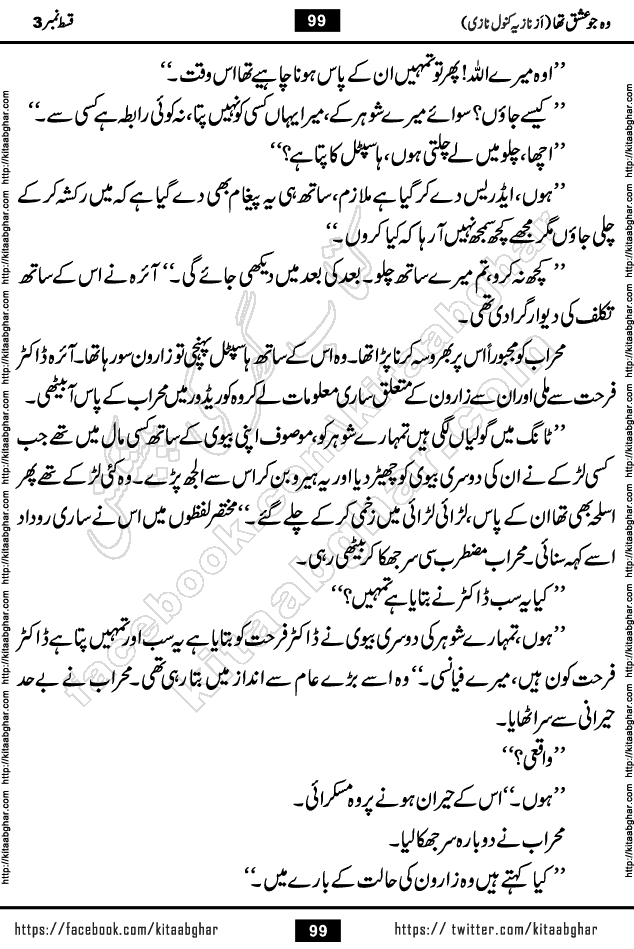 وہ جو عشق تھا (از نازیہ کنول نازی)
99
قسط نمبر 3
’’اوہ میرے اللہ! پھر تو تمہیں ان کے پاس ہونا چاہیے تھا اس وقت۔‘‘
’’کیسے جاؤں؟ سوائے میرے شوہر کے، میرا یہاں کسی کو نہیں پتا، نہ کوئی رابطہ ہے کسی سے۔‘‘
’’اچھا، چلو میں لے چلتی ہوں، ہاسپٹل کا پتا ہے؟‘‘
’’ہوں، ایڈریس دے کر گیا ہے ملازم، ساتھ ہی یہ پیغام بھی دے گیا ہے کہ میں رکشہ کر کے
چلی جاؤں مگر مجھے کچھ سمجھ نہیں آ رہا کہ کیا کروں۔‘‘
’’کچھ نہ کرو، تم میرے ساتھ چلو۔ بعد کی بعد میں دیکھی جائے گی۔‘‘ آئرہ نے اس کے ساتھ
تکلف کی دیوار گرا دی تھی۔
محراب کو مجبوراً اس پر بھروسہ کرنا پڑا تھا۔ وہ اس کے ساتھ ہاسپٹل پہنچی تو زارون سو رہا تھا۔ آئرہ ڈاکٹر
فرحت سے ملی اور ان سے زارون کے متعلق ساری معلومات لے کر وہ کوریڈور میں محراب کے پاس آ بیٹھی۔
’’ٹانگ میں گولیاں لگی ہیں تمہارے شوہر کو، موصوف اپنی بیوی کے ساتھ کسی مال میں تھے جب
کسی لڑکے نے ان کی دوسری بیوی کو چھیڑ دیا اور یہ ہیرو بن کر اس سے الجھ پڑے۔ وہ کئی لڑکے تھے پھر
اسلحہ بھی تھا ان کے پاس، لڑائی لڑائی میں زخمی کر کے چلے گئے۔‘‘ مختصر لفظوں میں اس نے ساری روداد
اسے کہہ سنائی۔ محراب مضطرب سی سر جھکا کر بیٹھی رہی۔
’’کیا یہ سب ڈاکٹر نے بتایا ہے تمہیں؟‘‘
’’ہوں، تمہارے شوہر کی دوسری بیوی نے ڈاکٹر فرحت کو بتایا ہے یہ سب اور تمہیں پتا ہے ڈاکٹر
فرحت کون ہیں، میرے فیانسی۔‘‘ وہ اسے بڑے عام سے انداز میں بتا رہی تھی۔ محراب نے بے حد
حیرانی سے سر اٹھایا۔
’’واقعی؟‘‘
’’ہوں۔‘‘ اس کے حیران ہونے پر وہ مسکرائی۔
محراب نے دوبارہ سر جھکا لیا۔
’’کیا کہتے ہیں وہ زارون کی حالت کے بارے میں۔‘‘
https://facebook.com/kitaabghar
99
https:// twitter.com/kitaabghar
http://kitaabghar.com http://kitaabghar.com http://kitaabghar.com http://kitaabghar.com http://kitaabghar.com http://kitaabghar.com http://kitaabghar.com http://kitaabghar.com
http://kitaabghar.com http://kitaabghar.com http://kitaabghar.com http://kitaabghar.com http://kitaabghar.com http://kitaabghar.com http://kitaabghar.com http://kitaabghar.com
کتاب گھر کی پیشکش
facebook.com/kitaabghar
kitaabghar.com